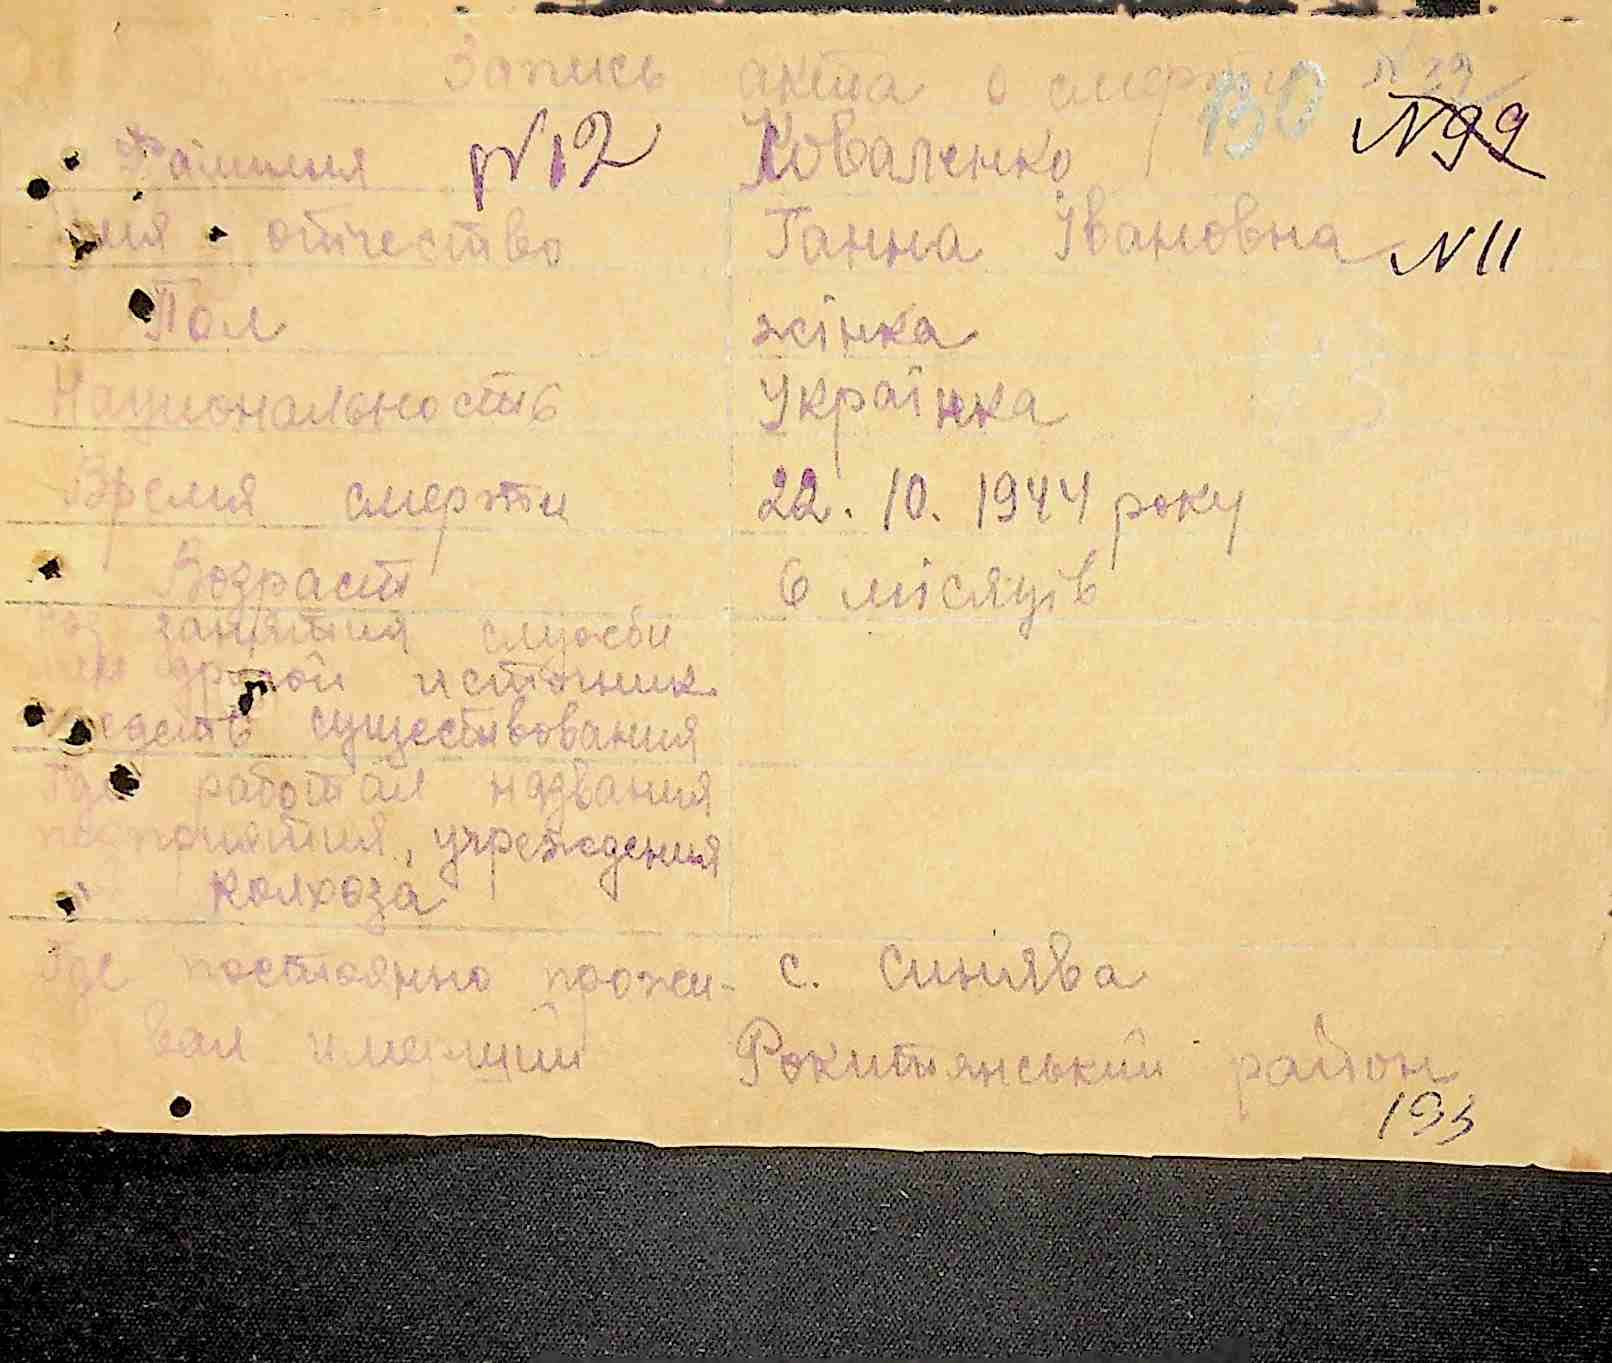 Запись акта о смерти №39
130
№99
Фамилия №12 Коваленко
имя отчество Ганна Івановна №11
Пол жінка
Национальность Українка
Время смерти 22. 10. 1944 року
Возраст 6 місяців
занятия служби
или другой источник
средств существования
Где работал надвания
педприятия, учреждения
и колхоза
Где постоянно прожи- с. Синява
вал умерший Рокитнянський район
193